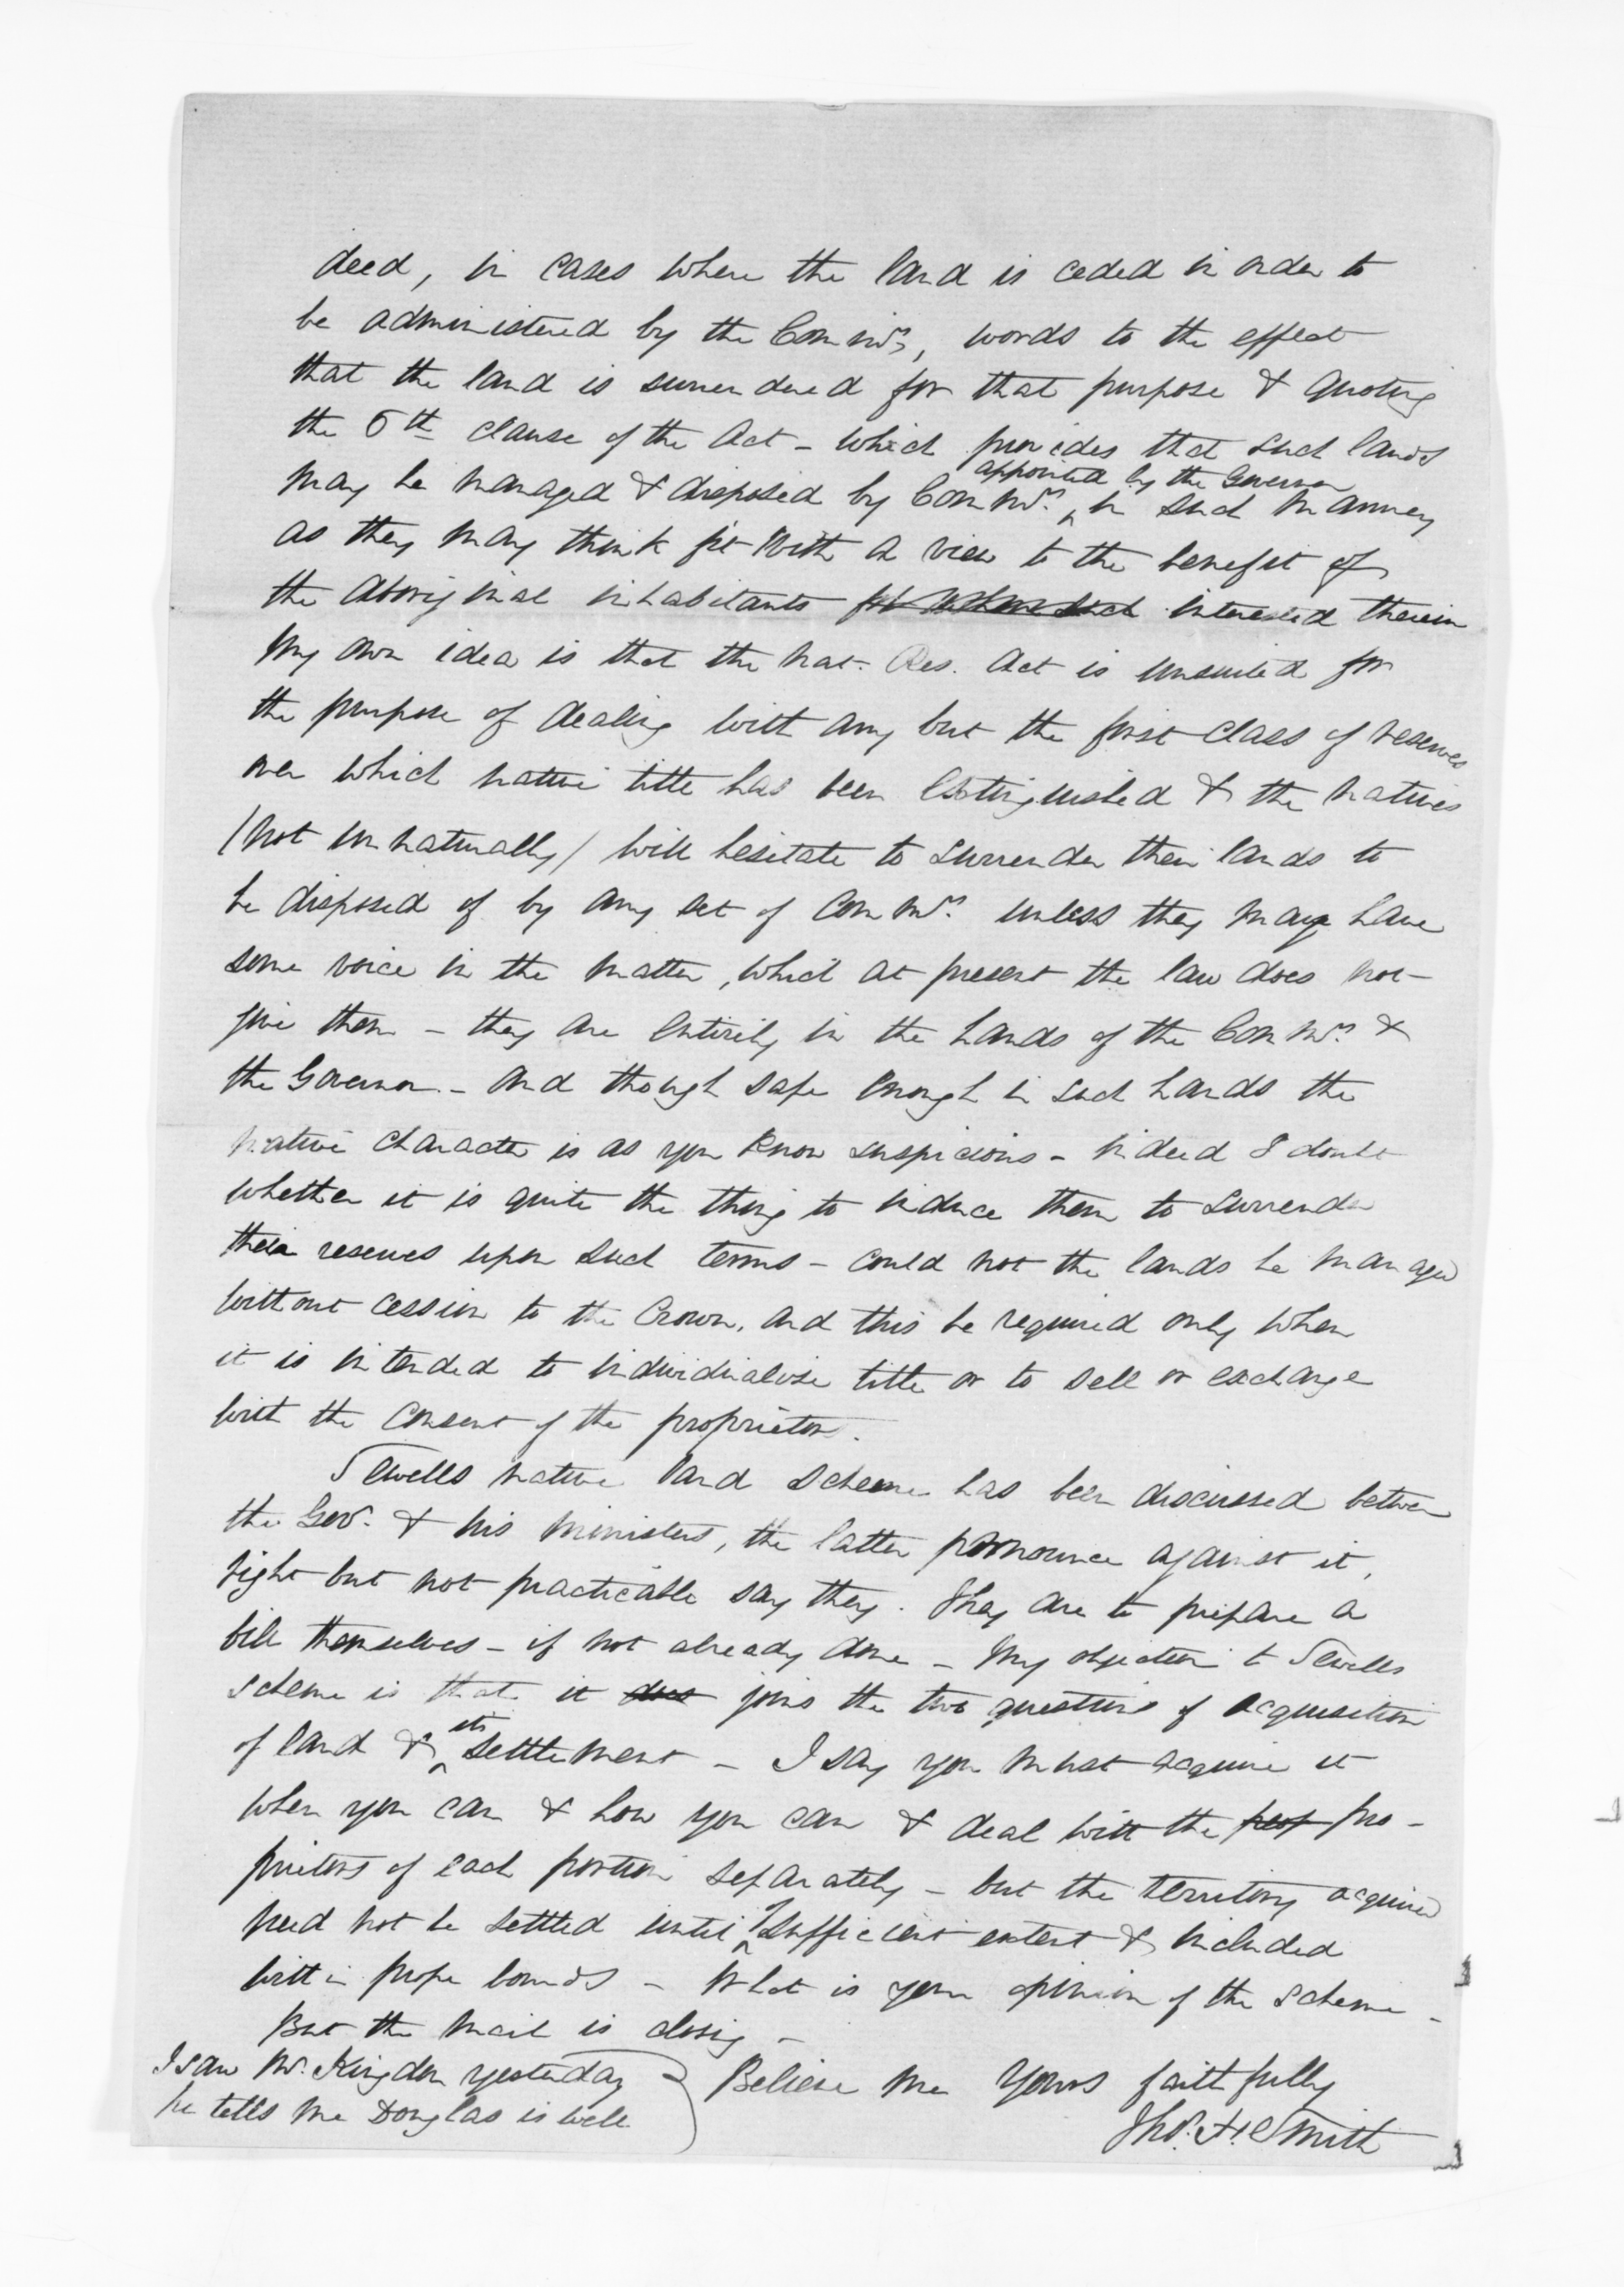 deed, in cases where the land is ceded in order to
be administered by the Commrs, words to the effect
that the land is surrendered for that purpose & quoting
the 6th clause of the Act - which provides that such lands
may be managed & disposed by Commrs. appointed by the Governor in such manner
as they may think fit with a view to the benefit of
the Aboriginal inhabitants interested therein
My own idea is that the Nat. Res. Act is unsuited for
the purpose of dealing with any but the first class of reserves
over which native title has been extinguished & the natives
(not unnaturally) will hesitate to surrender their lands to
be disposed of by any set of Commrs. unless they may have
some voice in the matter, which at present the law does not
give them - they are entirely in the hands of the Commrs. &
the Governor - and though safe enough in such hands the
native character is as you know suspicious - indeed I doubt
whether it is quite the thing to induce them to surrender
their reserves upon such terms - could not the lands be managed
without cession to the Crown, and this be required only when
it is intended to individualise title or to sell or exchange
with the consent of the proprietors.
Sewells native land scheme has been discussed between
the Gov. & his ministers, the latter pronounce against it,
right but not practicable say they. They are to prepare a
bill themselves - if not already done - My objection to Sewells
scheme is that it does joins the two questions of acquisition
of land & its settlement - I say you must acquire it
when you can & how you can & deal with the prop pro-
prietors of each portion separately - but the territory acquired
need not be settled until of sufficient extent & included
within proper bounds - What is your opinion of the scheme -
But the mail is closing -
I saw Mr. Kingdon yesterday
he tells me Douglas is well
Believe me Yours faithfully
Thos. H. Smith